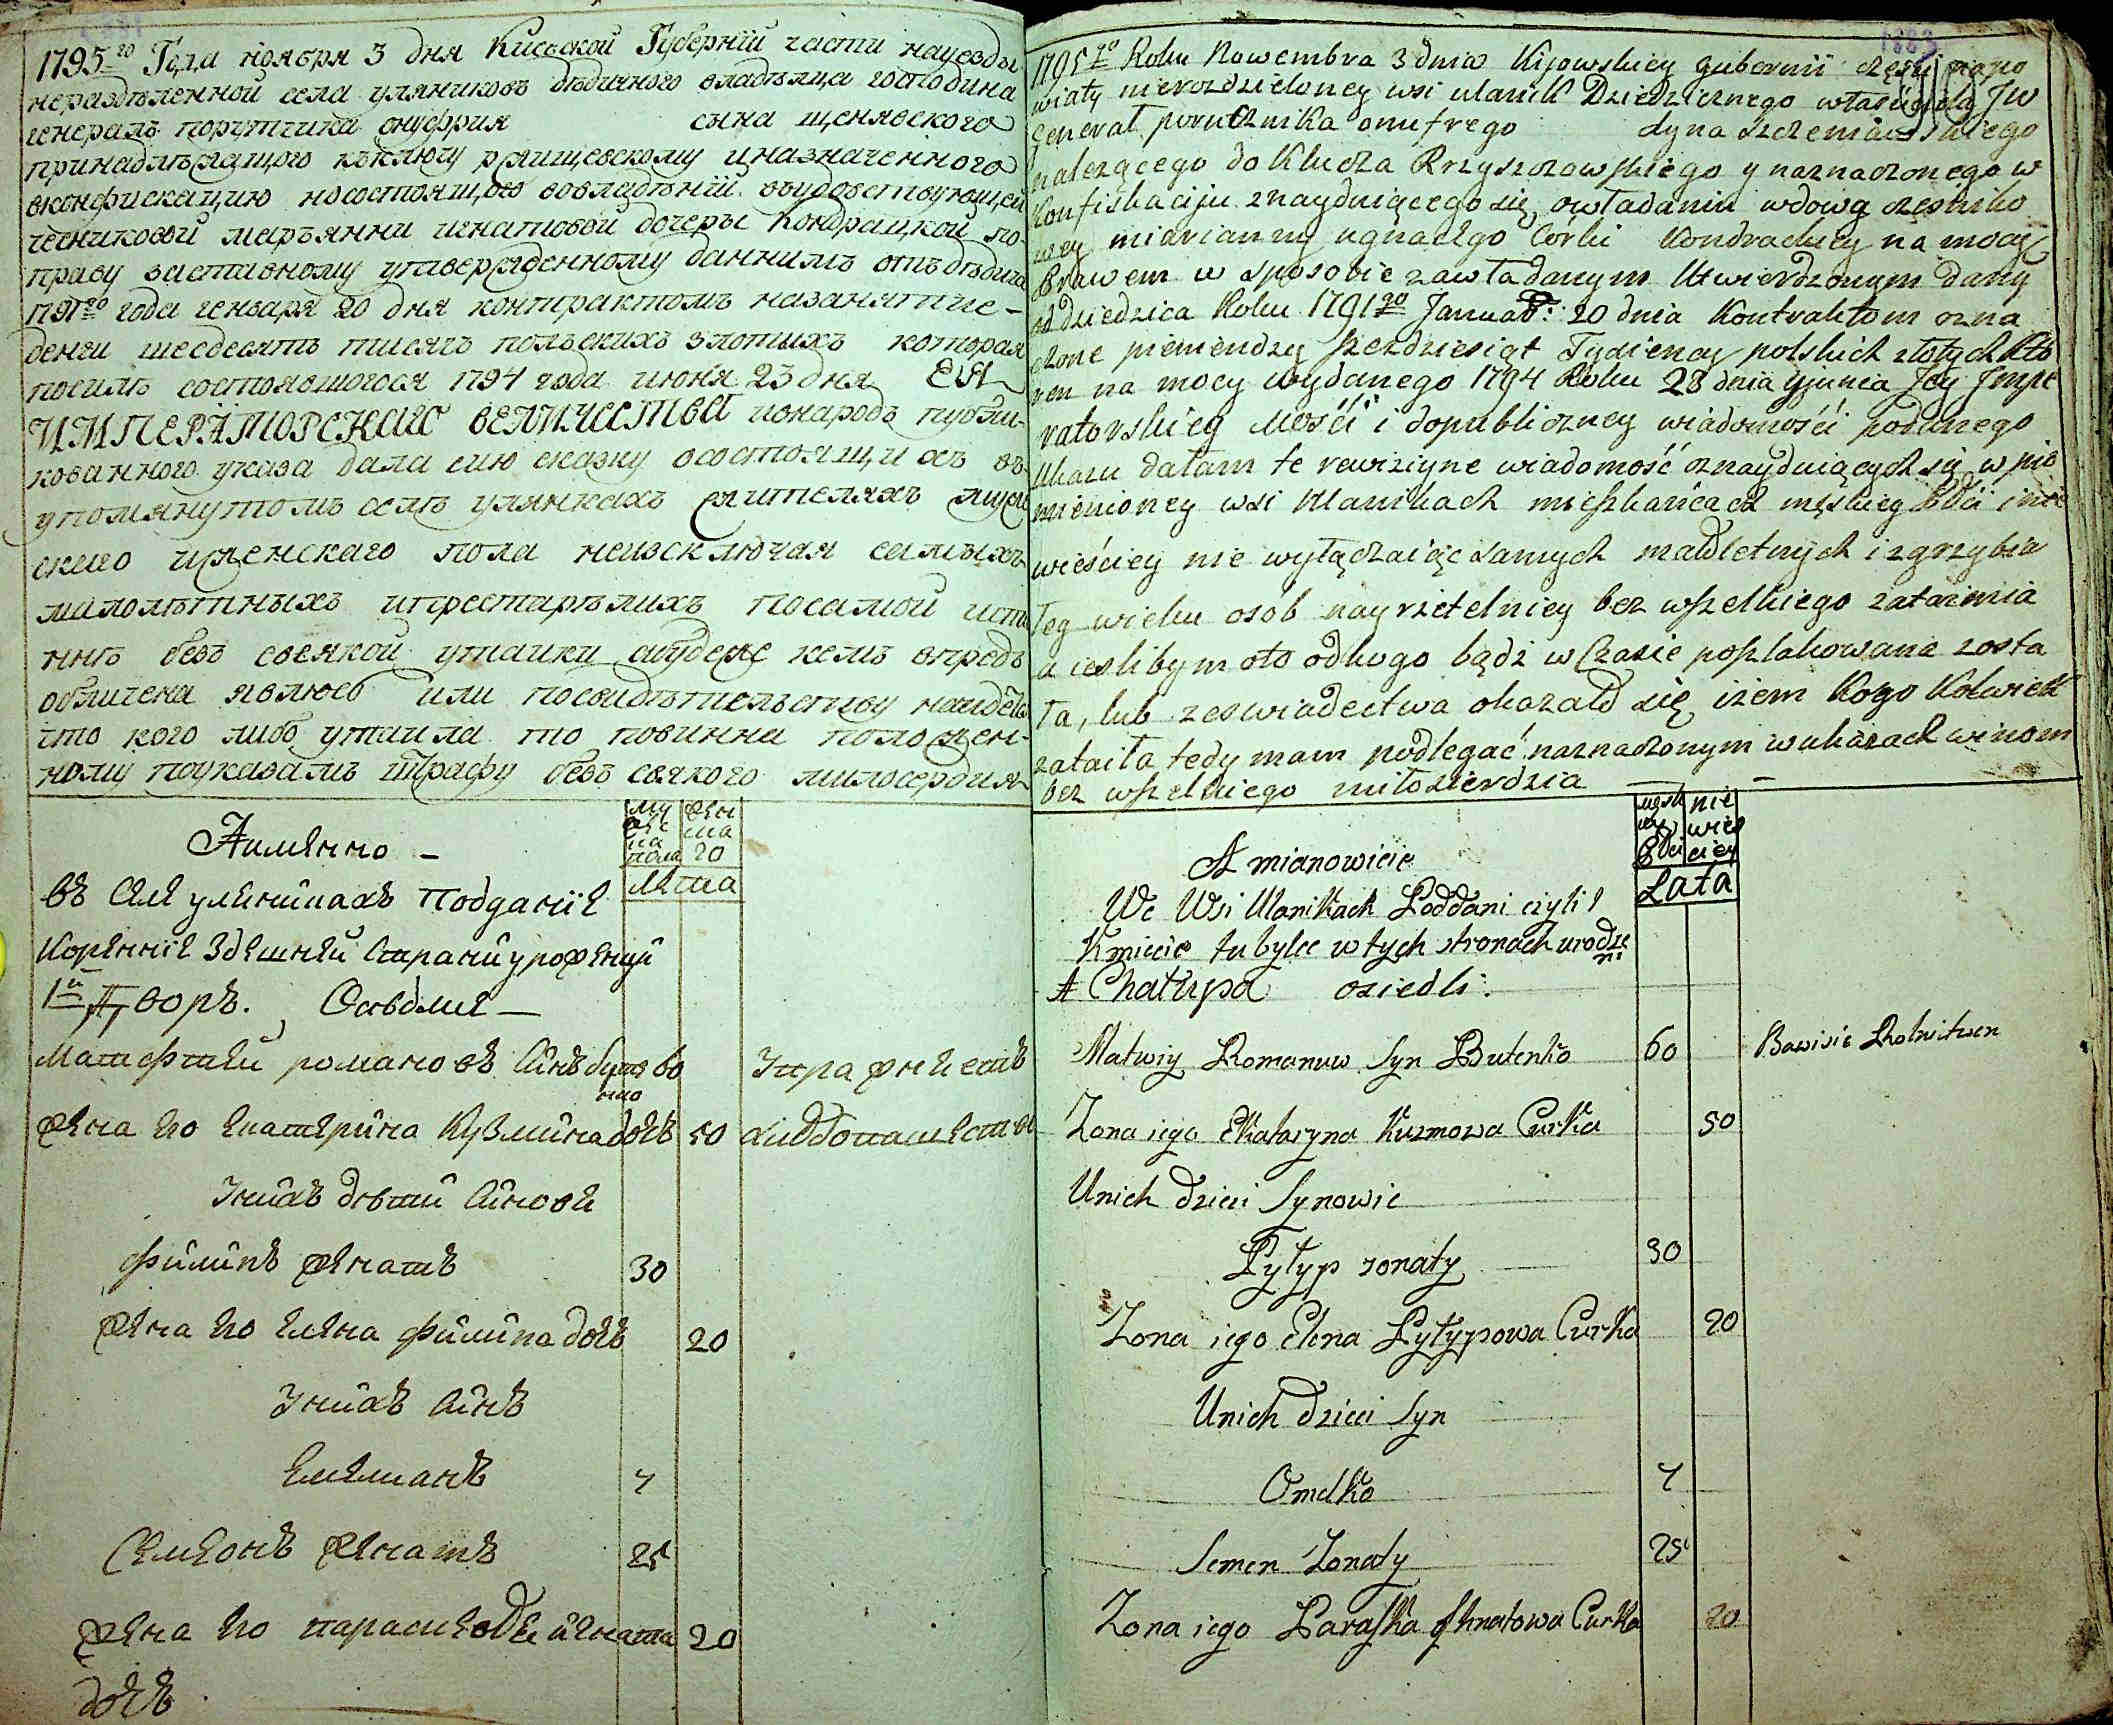 1795го Года ноября 3 дня Киевской Губернiи части науезды
неразделенной села уляниковъ дѣдичного владѣльца господина
генералъ порутчика онуфрия сына щенявского
принадлѣжащого къключу ржищевскому иназначенного
вконфискацию носостоящого вовладѣнiи въудовствующей
чесниковой маръянни игнатовой дочеры Кондрацкой по
праву заставному утвержденному даннимъ отъ дѣдича
1791го года генваря 20 дня контрактомъ названятие
денги шесдесятъ тисячъ польскихъ злотыхъ которая
посилѣ состоявшогося 1794 года июня 23 дня ЕЯ
ИМПЕРАТОРСКАГО ВЕЛИЧЕСТВА ивнародъ публи-
кованного указа дала сию сказку осостоящихъ въ
упомянутомъ селѣ улянкахъ жителяхъ мужe
ского иженскаго пола неизсключая самыхъ
малолѣтныхъ ипрестарѣлихъ посамой исти
ннѣ безъ всякой утайки абудеже кемъ впредъ
обличена явлюсь или посвидѣтельству найдется
что кого либо утаила то повинна положен-
ному поуказамъ штрафу безъ всякого милосердия
муже ска пола
женска го
лета
Аимянно –
въ селе уляникахъ Подданiе
Кореннiе здешней стараны урожены
1й Дворъ. Оседлие –
Матфтей романовъ синъ бутенко 60 Упражняется
жена его екатерина Кузмина дочь 50 хлебопашество
Унихъ дети синови
филипъ женатъ 30
жена его елена филипа дочь 20
Унихъ синъ
емелианъ 4
Семіонъ женатъ 25
жена его параскеведа игната 20
дочь
1795го Roku Nowembra 3 dnia Kijowskiey gubernii części napo
wiaty nierozdzieloney wsi ulanik Dziedzicznego właściciela Jw
generał porucznika onufrego syna szczeniawskiego
należącego do Klucza Rzyszczowskiego y naznaczonego w
Konfiskaciju znayduiącego się owładaniu wdową cześniko
wey miarianny ugnacego Corki Kondrackiey na mocy
Prawem w sposobie zawładanym Utwierdzonym dany
od dziedzica Roku 1791го Januar: 20 dnia Kontraktom ozna
czone piemiendzy szezdziesiąt Tysiency polskich złotych kto
ren na mocy wydanego 1794 Roku 23 dnia yjunia Jey Jmpe
ratorskiey Mości i dopubliczney wiadomości podanego
Ukazu dałam te rewiziyne wiadomość oznayduiących się w pie
mienioney wsi Ulanikach mieszkańcach męskiey płci i nie
wieściey nie wyłączaiąc samych małoletnych i zgrzybia
łey wieku osób nayrzetelniey bez wszelkiego zatajenia
a iesliby m oto odkogo bądź w Czasie poszlakowana zosta
ła, lub zeswiadectwa okazało się iżem Kogo Kolwiek
zataiła tedy mam podlegać naznaczonym wukazach winom
bez wszelkiego miłosierdzia
męsk iey płci
nie wieś ciey
Lata
A mianowicie
We Wsi Ulanikach Poddani czyli
Kmiecie tubylce w tych stronach urodze
ni
A Chałupa osiedli.
Matwiy Romanuw Syn Butenko 60 Bawisie Rolnitwen
Zona iego Ekataryna Kuzmowa Curka 50
Unich dzieci Synowie
Pylyp zonaty 30
Zona iego Elena Pylypowa Curka 20
Unich dzieci Syn
Omelko 4
Semen Zonaty 25
Zona iego Paraska Ihnatowa Curka 20